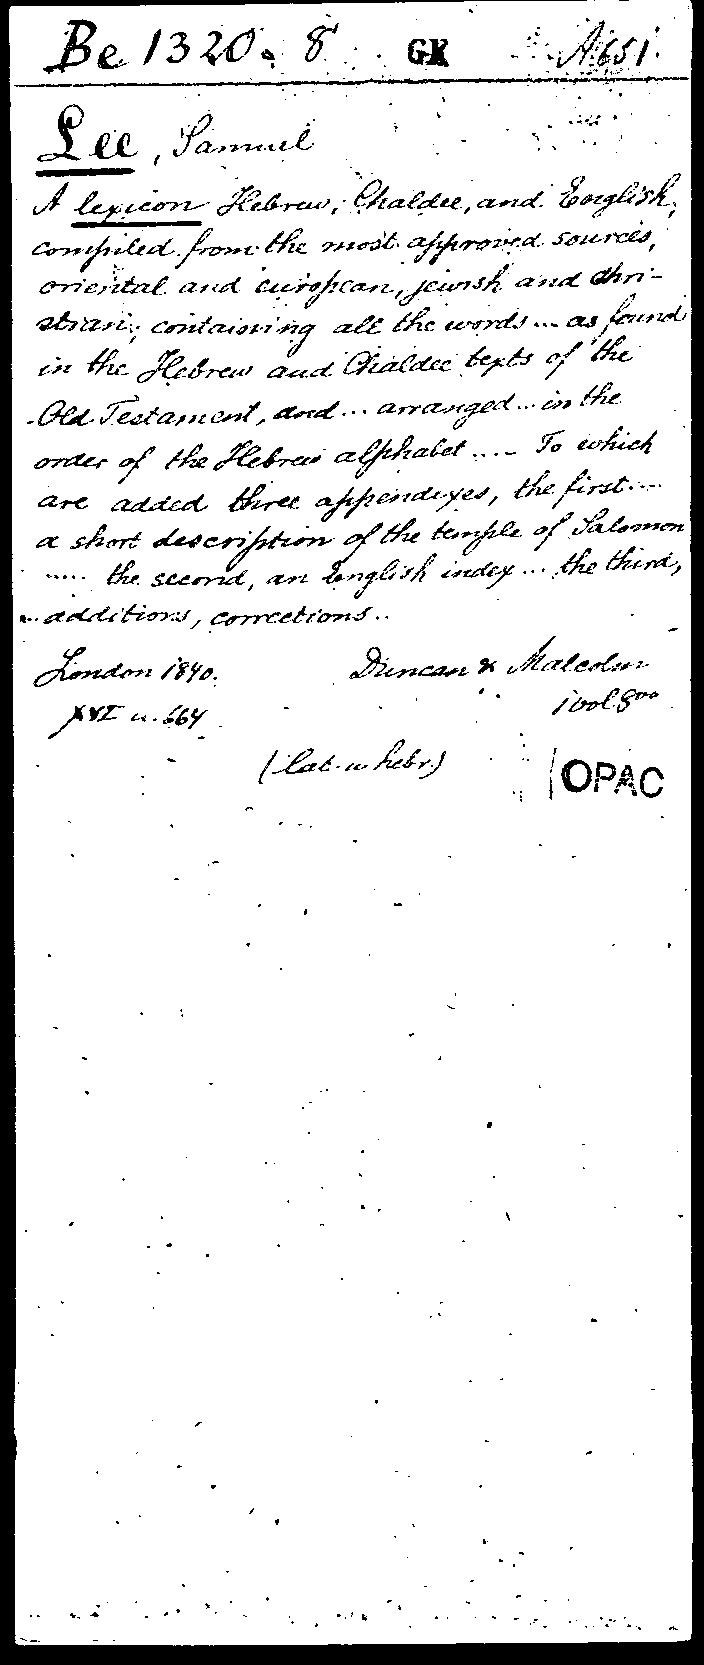 Be 1320. 8 GK A.651.
Lee, Samuel
A lexicon Hebrew, Chaldee, and English;
compiled from the most approved sources,
oriental and european, jewish and chri-
stian; containing all the words ... as found
in the Hebrew and Chaldee texts of the
Old Testament, and ... arranged ... in the
order of the Hebrew alphabet .... To which
are added three appendixes, the first ...
a short description of the temple of Salomon
..... the second, an English index ... the third,
... additions, corrections ..
London 1840. Duncan & Malcolm
XVI u. 664 1 vol 8vo
(lat. u hebr.) OPAC